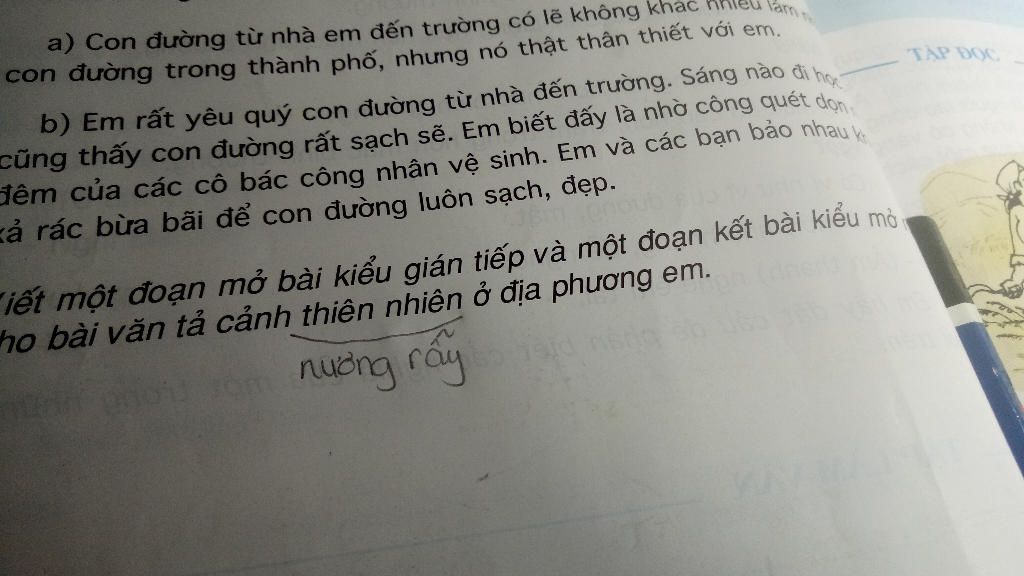 a) Con đường từ nhà em đến trường có lẽ không khác nhiều lắm
con đường trong thành phố, nhưng nó thật thân thiết với em.
b) Em rất yêu quý con đường từ nhà đến trường. Sáng nào đi học
cũng thấy con đường rất sạch sẽ. Em biết đấy là nhờ công quét dọn
đêm của các cô bác công nhân vệ sinh. Em và các bạn bảo nhau
xả rác bừa bãi để con đường luôn sạch, đẹp.
Viết một đoạn mở bài kiểu gián tiếp và một đoạn kết bài kiểu mở
cho bài văn tả cảnh thiên nhiên ở địa phương em.
nương rẫy
TẬP ĐỌC